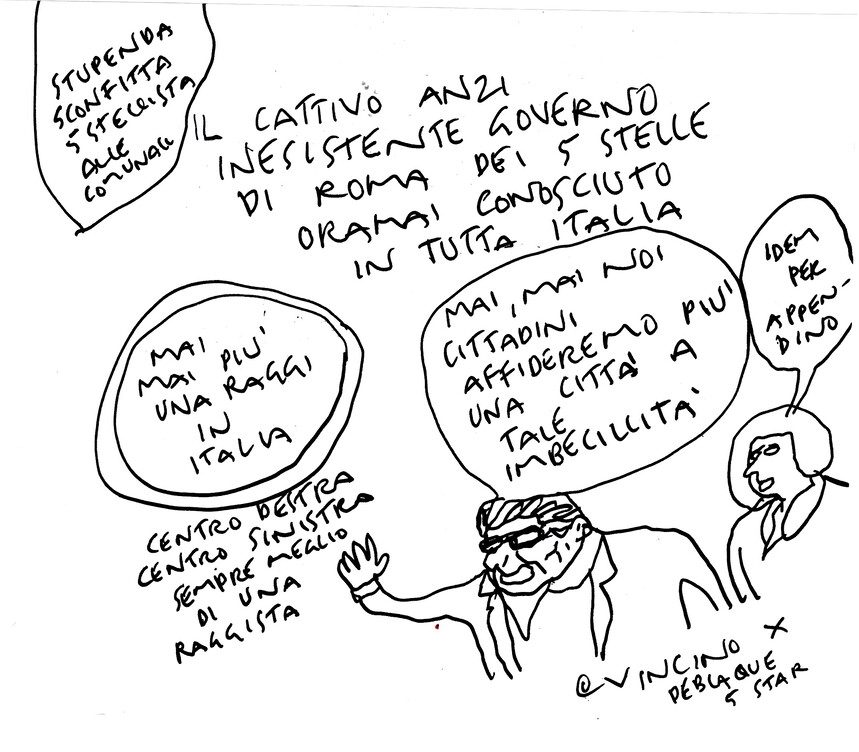 STUPENDA
SCONFITTA
5 STELLISTA
ALLE
COMUNALI
IL CATTIVO ANZI
INESISTENTE GOVERNO
DI ROMA DEI 5 STELLE
ORAMAI CONOSCIUTO
IN TUTTA ITALIA
MAI
MAI PIU'
UNA RAGGI
IN
ITALIA
CENTRO DESTRA
CENTRO SINISTRA
SEMPRE MEGLIO
DI UNA
RAGGISTA
MAI, MAI NOI
CITTADINI
AFFIDEREMO PIU'
UNA CITTA' A
TALE
IMBECILLITA'
IDEM
PER
APPEN-
DINO
@VINCINO X
DEBLAQUE
5 STAR